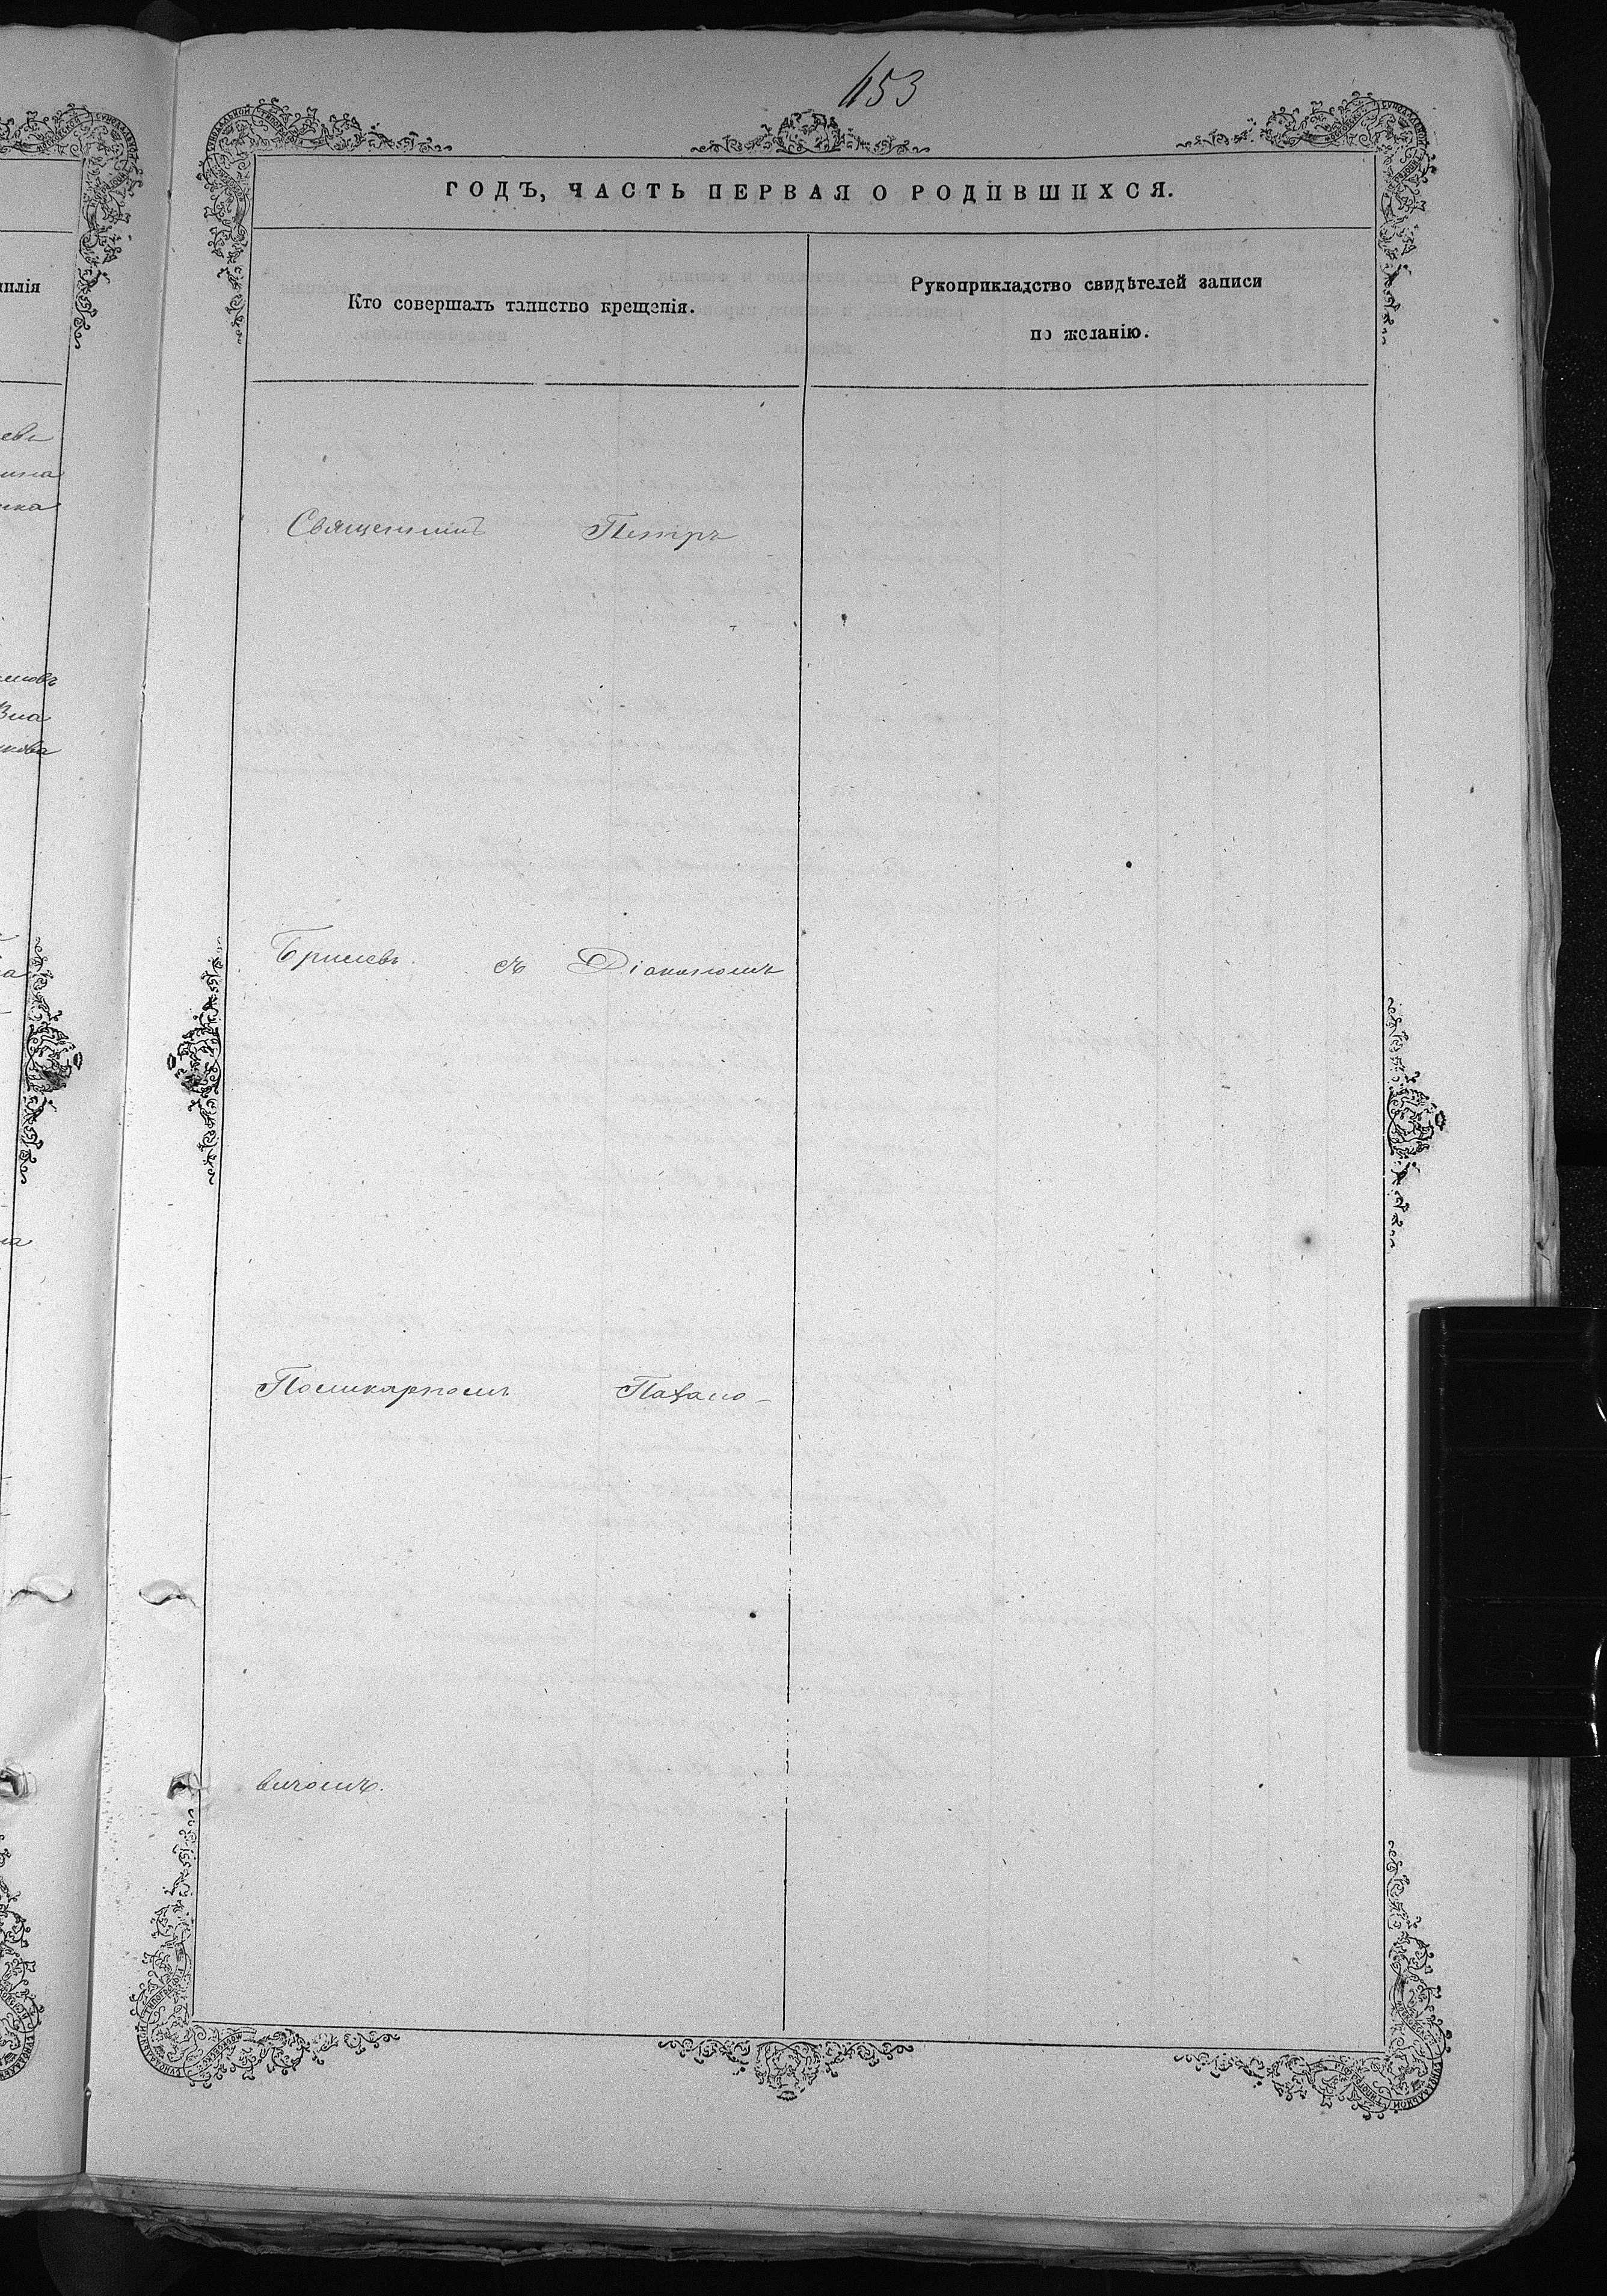 153
ГОДЪ, ЧАСТЬ ПЕРВАЯ О РОДИВШИХСЯ.
Кто совершалъ таинство крещенія.
Рукоприкладство свидѣтелей записи
по желанію.
Священникъ Петръ
съ Діакономъ
Поликарпомъ
вичомъ.